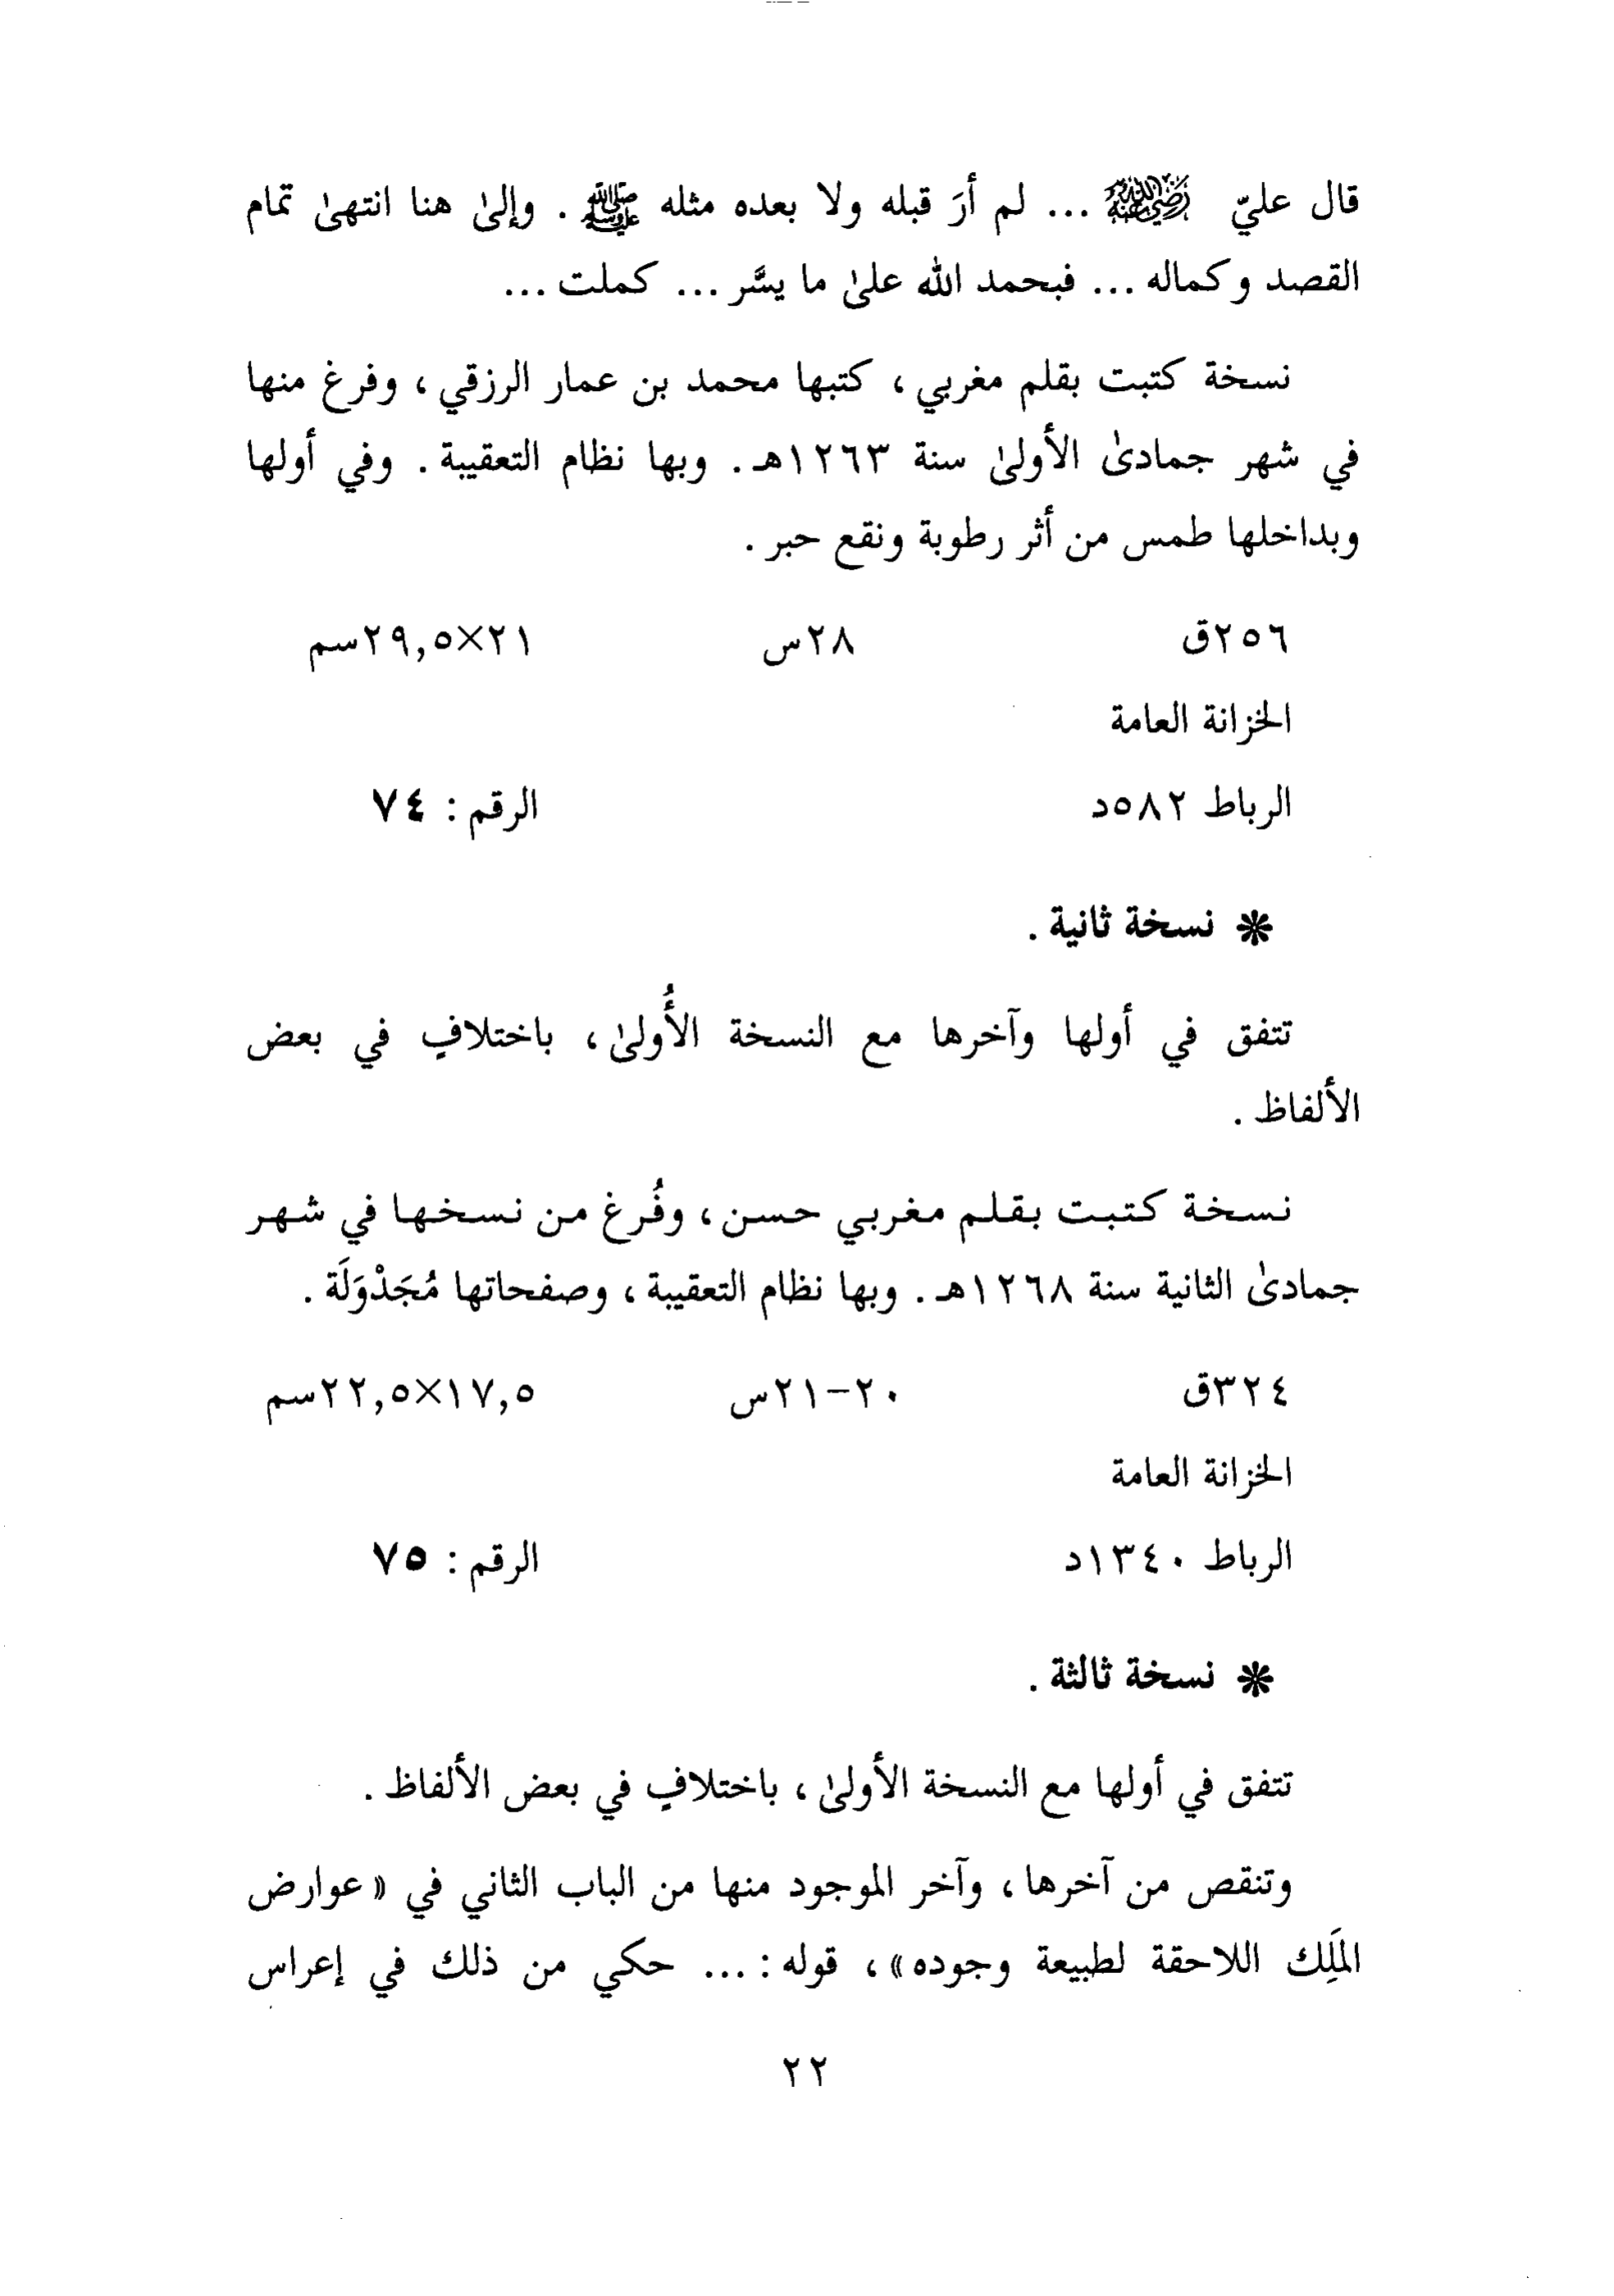 قال عليّ رضي الله عنه ... لم أرَ قبله ولا بعده مثله ﷺ . وإلىٰ هنا انتهىٰ تمام
القصد وكماله ... فبحمد الله علىٰ ما يسَّر ... كملت ...
نسخة كتبت بقلم مغربي ، كتبها محمد بن عمار الرزقي ، وفرغ منها
في شهر جمادىٰ الأولىٰ سنة ١٢٦٣هـ . وبها نظام التعقيبة . وفي أولها
وبداخلها طمس من أثر رطوبة ونقع حبر .
٢٥٦ق ٢٨س ٢١×٢٩,٥سم
الخزانة العامة
الرباط ٥٨٢د الرقم : ٧٤
* نسخة ثانية .
تتفق في أولها وآخرها مع النسخة الأُولىٰ ، باختلافٍ في بعض
الألفاظ .
نسخة كتبت بقلم مغربي حسن ، وفُرغ من نسخها في شهر
جمادىٰ الثانية سنة ١٢٦٨هـ . وبها نظام التعقيبة ، وصفحاتها مُجَدْوَلَة .
٣٢٤ق ٢٠-٢١س ١٧,٥×٢٢,٥سم
الخزانة العامة
الرباط ١٣٤٠د الرقم : ٧٥
* نسخة ثالثة .
تتفق في أولها مع النسخة الأولىٰ ، باختلافٍ في بعض الألفاظ .
وتنقص من آخرها ، وآخر الموجود منها من الباب الثاني في «عوارض
المَلِك اللاحقة لطبيعة وجوده» ، قوله : ... حكي من ذلك في إعراس
٢٢